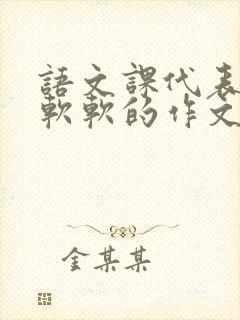 語文課代表
軟軟的作文
金某某